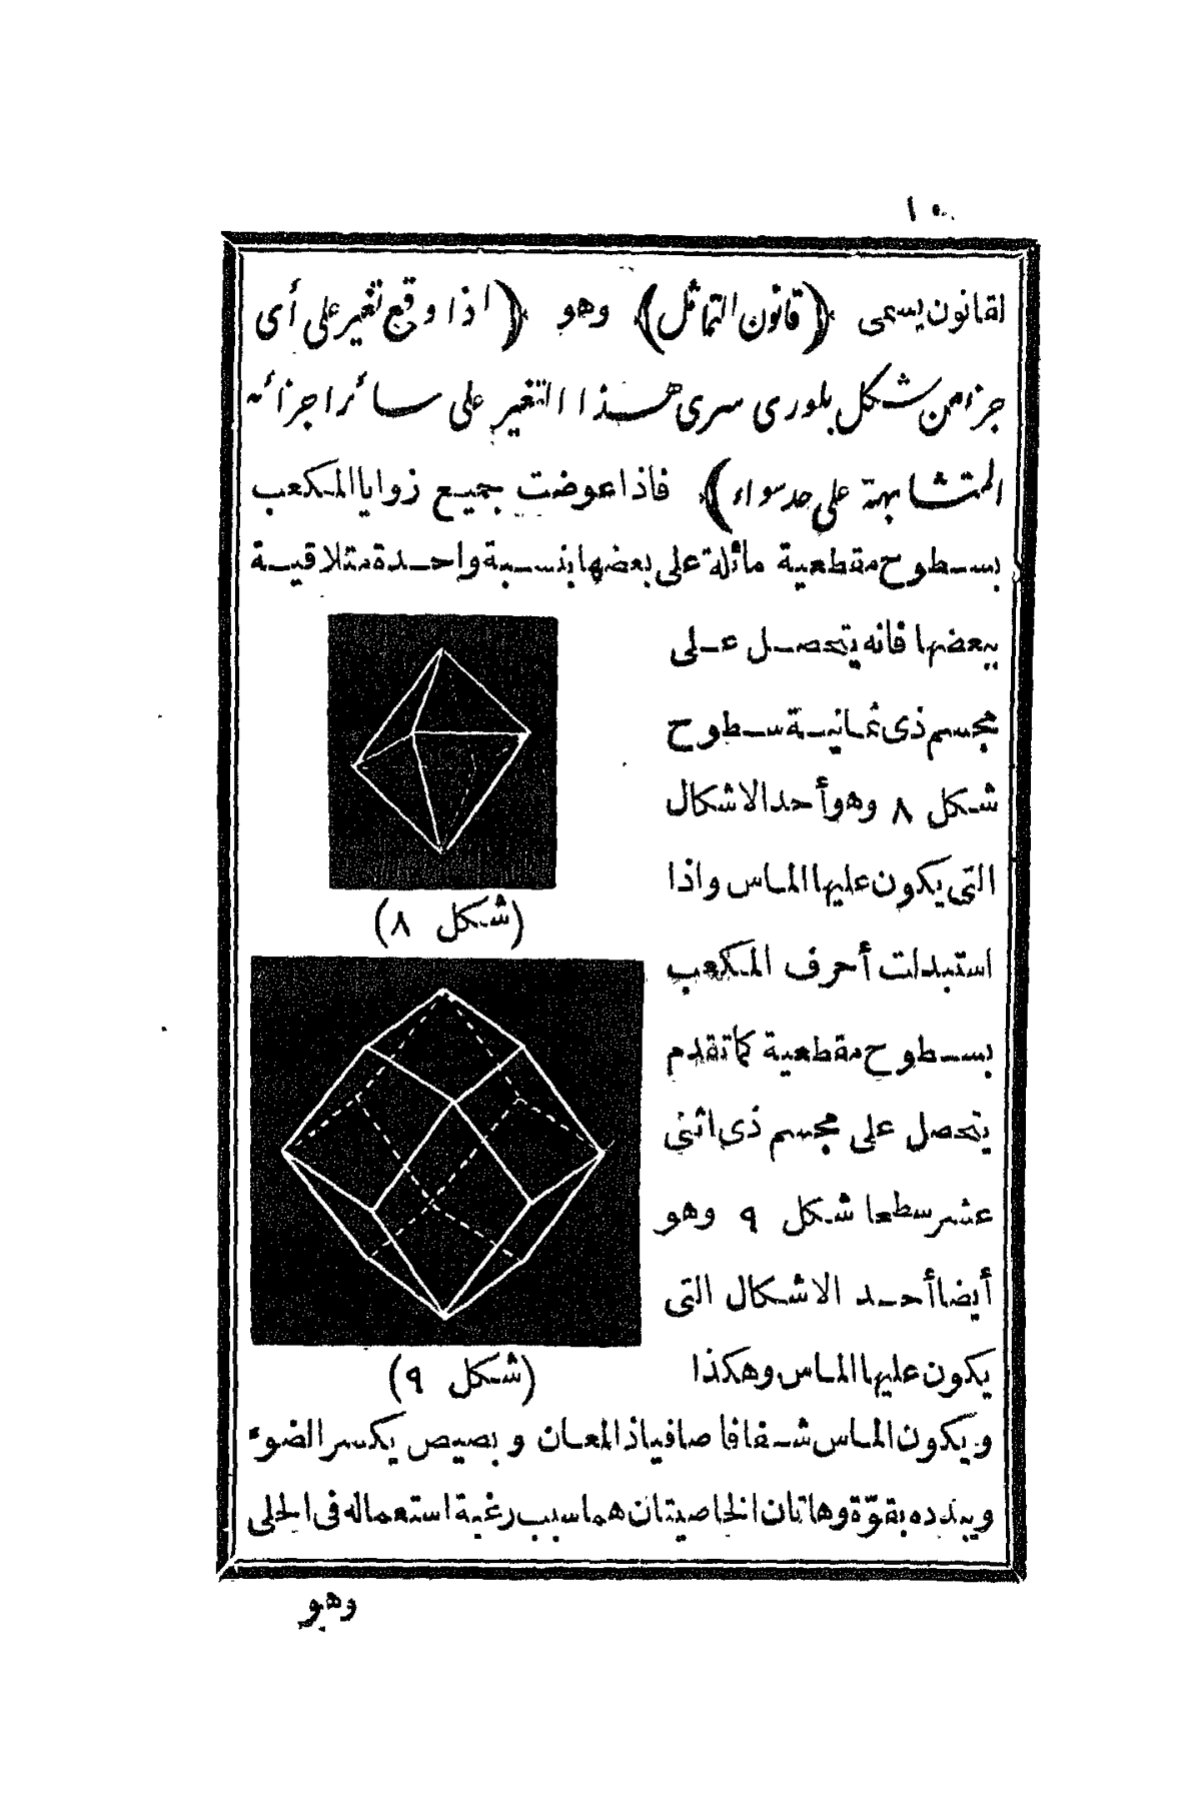 لقانون يسمى ﴿قانون التماثل﴾ وهو ﴿اذا وقع تغير على أى
جزء من شكل بلورى سرى هذا التغير على سائر اجزائه
المتشابهة على حد سواء﴾ فاذا عوضت جميع زوايا المكعب
بسطوح مقطعية مائلة على بعضها بنسبة واحدة متلاقية
ببعضها فانه يتحصل على
مجسم ذى ثمانية سطوح
شكل ٨ وهو أحد الاشكال
التى يكون عليها الماس واذا
استبدلت أحرف المكعب
بسطوح مقطعية كما تقدم
يتحصل على مجسم ذى اثنى
عشر سطحا شكل ٩ وهو
أيضا أحد الاشكال التى
يكون عليها الماس وهكذا
(شكل ٨)
(شكل ٩)
ويكون الماس شفافا صافيا ذا لمعان وبصيص يكسر الضوء
ويبدده بقوّة وهاتان الخاصيتان هما سبب رغبة استعماله فى الحلى
وهو